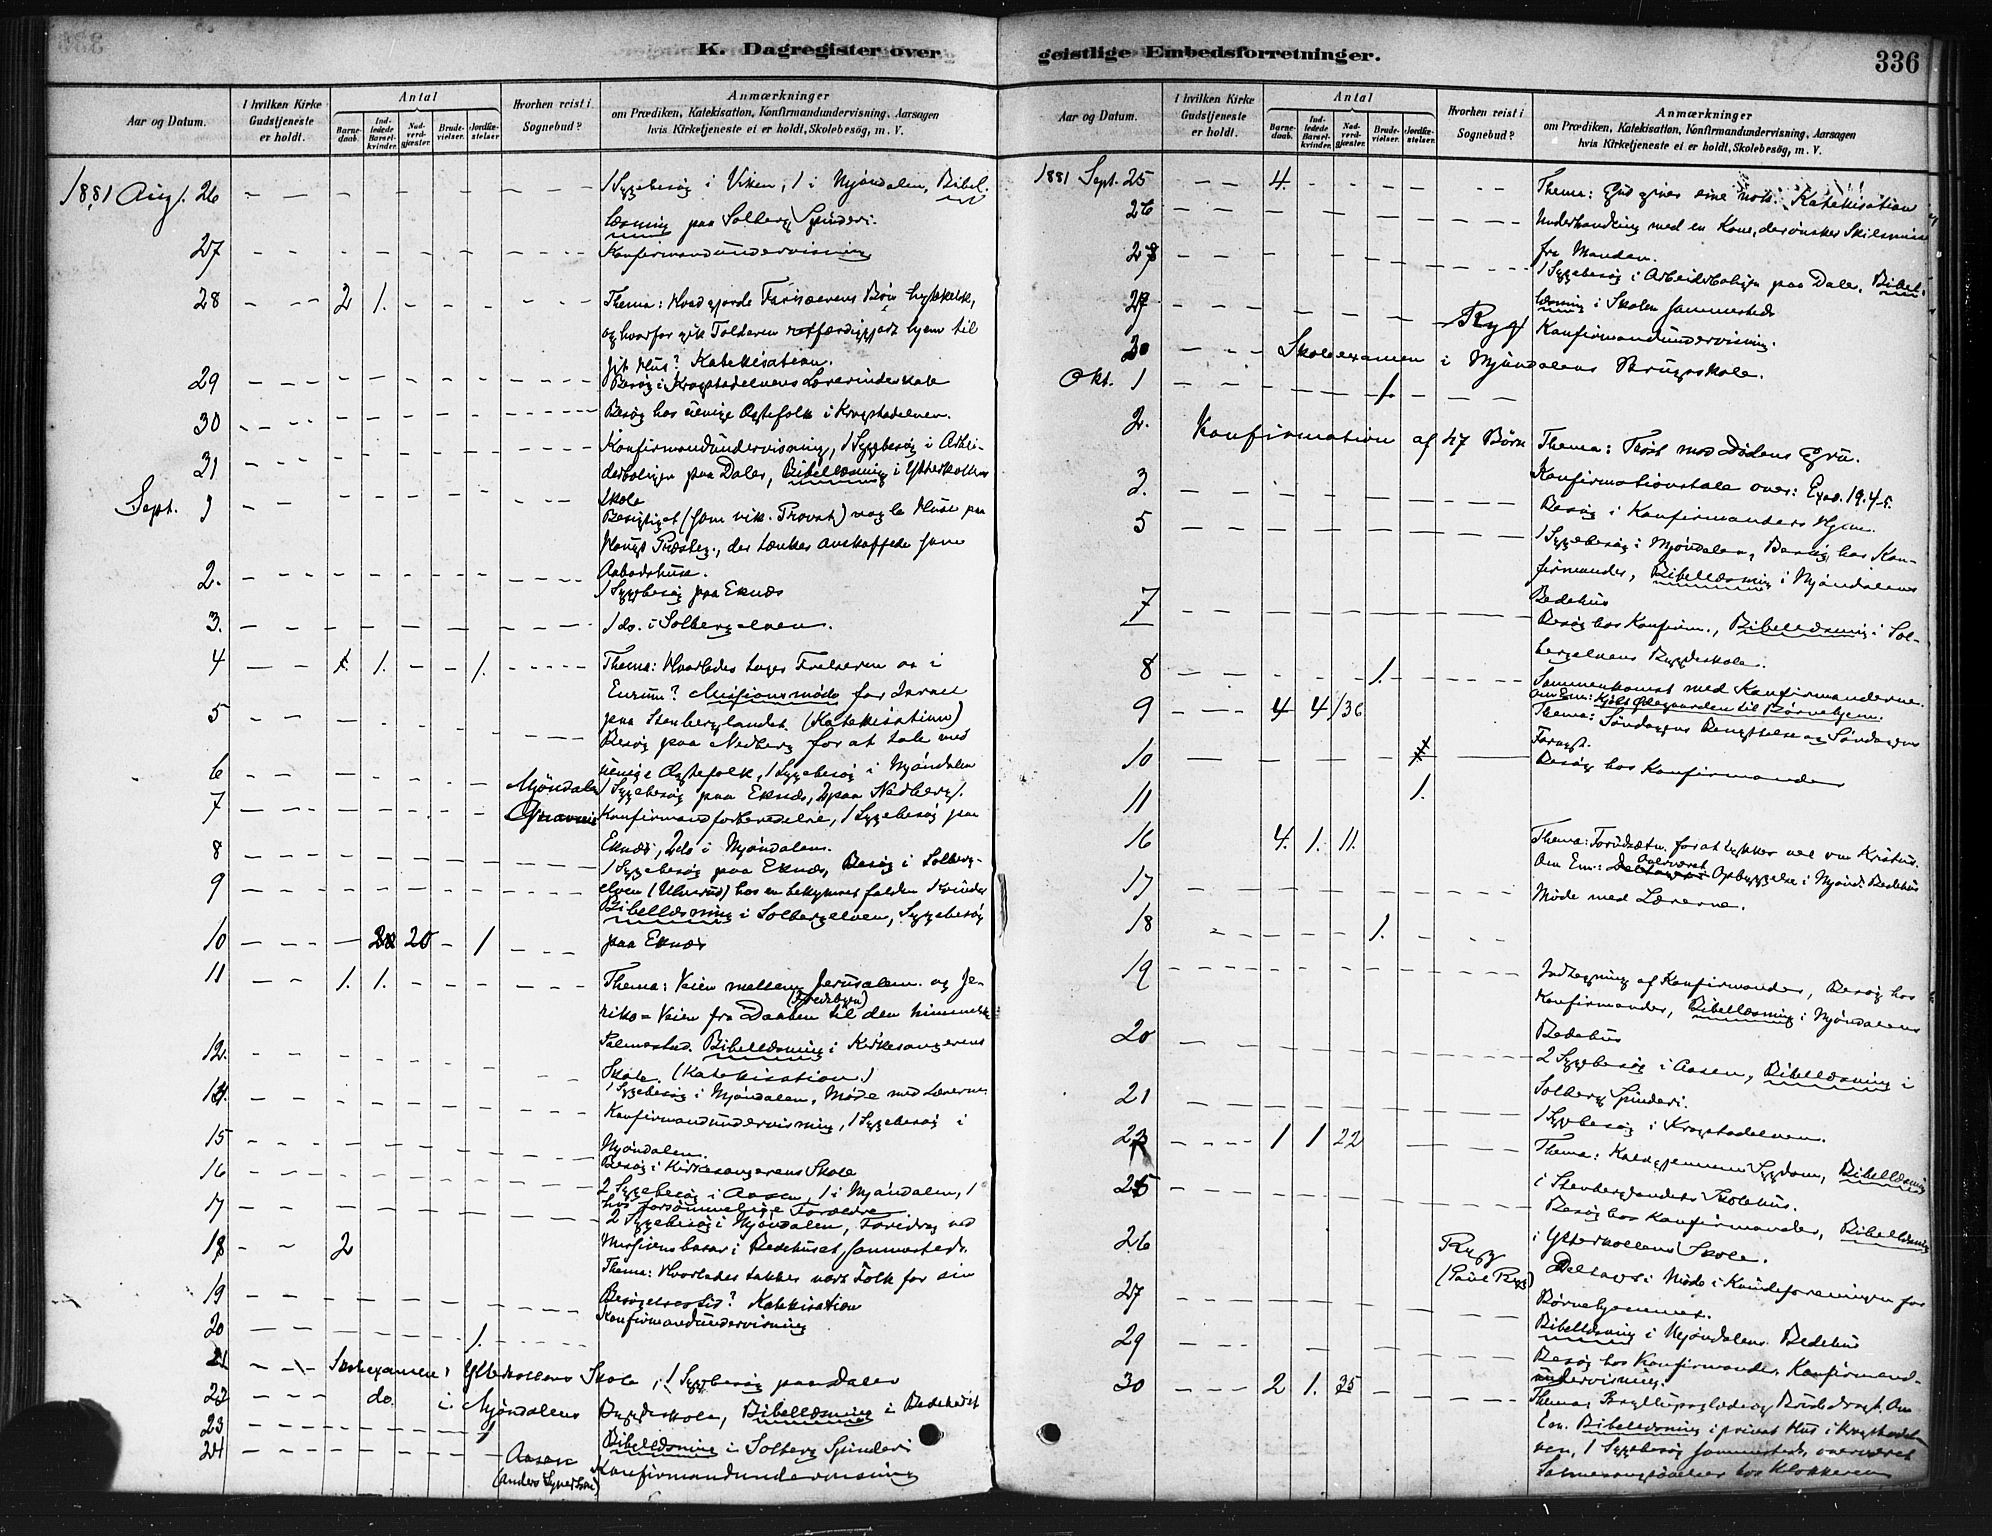 K. Dagregister over geistlige Embedsforretninger.
336
Aar og Datum.
I hvilken Kirke Gudstjeneste er holdt.
Antal
Barne-daab.
Ind-ledede Barsel-kvinder.
Nad-verd-gjæster.
Brude-vielser.
Jordfæ-stelser
Hvorhen reist i Sognebud?
Anmærkninger
om Prædiken, Katekisation, Konfirmandundervisning, Aarsagen
hvis Kirketjeneste ei er holdt, Skolebesøg, m. V.
1881 Aug. 26 1 Sygebesøg i Viken, 1 i Mjøndalen, Bibel-
læsning paa Solberg Spinderi.
27 Konfirmandundervisning
28 2 1. Thema: Hvad gjorde Farisæerens Bøn hyklersk,
og hvorfor gik Tolderen retfærdiggjort hjem til
sit Hus? Katekisation.
29 Besøg i Krogstadelvens Lærerindeskole
30 Besøg hos uenige Ægtefolk i Krogstadelven.
31 Konfirmandundervisning, 1 Sygebesøg i Arbei-
derboligen paa Daler, Bibellæsning i Ytterkollens
Skole
Sept. 1 Besigtiget (som vik. Provst) nogle Huse paa
Hougs Præsteg., der tænkes anskaffede som
Aabodshuse.
2. 1 Sygebesøg paa Eknæs
3. 1 do. i Solbergelven.
4 1. 1. 1. Thema: Hvorledes tages Frelseren os i
Missionsmøde for Israel
paa Stenberglandet. (Katekisation)
5 Besøg paa Nedberg for at tale med
uenige Ægtefolk, 1 Sygebesøg i Mjøndalen
6 Mjøndalen 1 Sygebesøg paa Eknæs, 2 paa Nedberg.
7 Konfirmandforberedelse, 1 Sygebesøg paa
Eknæs, 2 do i Mjøndalen.
8 1 Sygebesøg paa Eknæs, Besøg i Solberg-
9 elven (Ulverud) hos en bekymret falden Kvinde
Bibellæsning i Solbergelven, Sygebesøg
10 20 1 paa Eknæs
11 1. 1. Thema: Veien mellem Jerusalem og Je-
riko = Veien fra Daaben til den himmelske
12. Palmestad. Bibellæsning i Kirkesangerens
Skole. (Katekisation.)
14. 1 Sygebesøg i Mjøndalen, Møde med Lærerne
Konfirmandundervisning, 1 Sygebesøg i
15 Mjøndalen.
16 Besøg i Kirkesangerens Skole
2 Sygebesøg i Aasen, 1 i Mjøndalen, 1
hos forsømmelige Forældre
17 2 Sygebesøg i Mjøndalen, Foredrag ved
18 2 Missionsbasar i Bedehuset sammesteds.
Thema: Hvorledes takker vort Folk for sin
19 Besøgelsestid? Katekisation
20 1. Konfirmandundervisning
21 Skoleexamen i Ytterkollens Skole, 1 Sygebesøg paa Daler
22 do. i Mjøndalens Bygdeskole, Bibellæsning i Bedehuset
23 1 Bibellæsning i Solberg Spinderi
24 Aasen Konfirmandundervisning
Aar og Datum.
I hvilken Kirke Gudstjeneste er holdt.
Antal
Barne-daab.
Ind-ledede Barsel-kvinder.
Nad-verd-gjæster.
Brude-vielser.
Jordfæ-stelser.
Hvorhen reist i Sognebud?
Anmærkninger
om Prædiken, Katekisation, Konfirmandundervisning, Aarsagen
hvis Kirketjeneste ei er holdt, Skolebesøg, m. V.
1881 Sept. 25 4. Thema: Gud giver sine nok. Katekisation
26 Underhandling med en Kone, der ønsker Skilsmisse
fra Manden.
1 Sygebesøg i Arbeiderboligen paa Daler, Bibel-
læsning i Skolen sammesteds
Ryg Konfirmandundervisning.
30 Skoleexamen i Mjøndalens Brugsskole.
Okt. 1 1.
2. Konfirmation af 47 Børn Thema: Trøst mod Dødens Gru.
Konfirmationstale over: Exod. 19.4-5.
3. Besøg i Konfirmanders Hjem.
5 1 Sygebesøg i Mjøndalen, Besøg hos Kon-
firmander, Bibellæsning i Mjøndalens
Bedehus
7 Besøg hos Konfirm., Bibellæsning i Sol-
bergelvens Bygdeskole.
8 1. Sammenkomst med Konfirmanderne.
9 4 4 136 Om Em: Kjøbt Øvregaarden til Børnehjem.
Thema: Søndagens Benyttelse og Søndagens
Foragt.
10 Besøg hos Konfirmander
11 1.
16 4. 1. 11. Thema: Forudsætn. for at tykkes vel om Kristus.
Om Em.: Overværet Opbyggelse i Mjønd. Bedehus
17 Møde med Lærerne.
18 1.
19 Indtegning af Konfirmander, Besøg hos
Konfirmander, Bibellæsning i Mjøndalens
Bedehus
20 2 Sygebesøg i Aasen, Bibellæsning i
Solberg Spinderi.
21 1 Sygebesøg i Krogstadelven.
23 1 1 22 Thema: Kald gjennem Sygdom, Bibellæsning
i Stenberglandets Skolehus.
25 Besøg hos Konfirmander, Bibellæsning
i Ytterkollens Skole.
26 Ryg (Paul Ryg) Deltaget i Møde i Kvindeforeningen for
Børnehjemmet.
27 Bibellæsning i Mjøndalens Bedehus
29 Besøg hos Konfirmander, Konfirmand-
undervisning.
30 2 1. 35 Thema, Bryllupsglæde og Bordedragt. Om
Em. Bibellæsning i privat Hus i Krogstadel-
ven, 1 Sygebesøg sammesteds, overværet
Salmesangøvelser hos Klokkeren